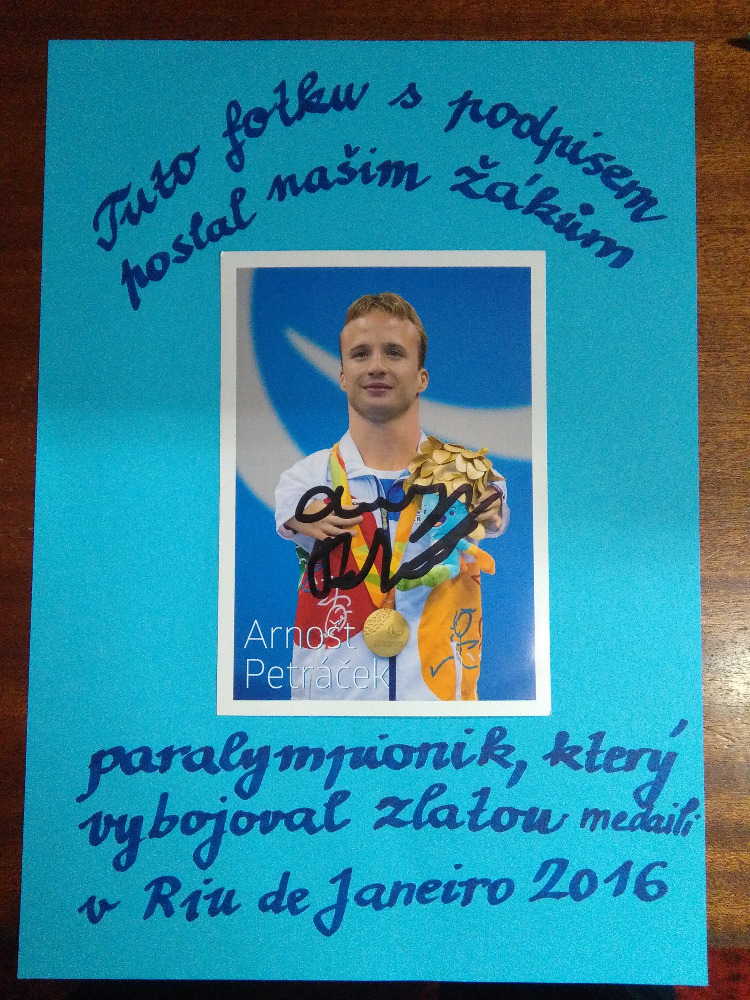 Tuto fotku s podpisem
poslal našim žákům
Arnošt
Petráček
paralympionik, který
vybojoval zlatou medaili
v Riu de Janeiro 2016